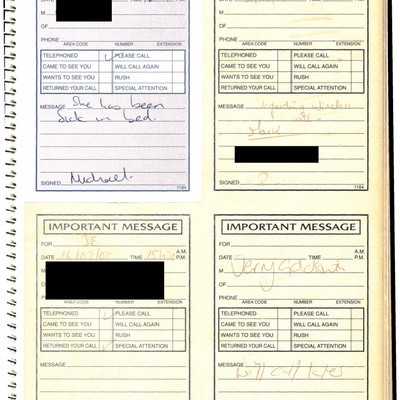 DATE TIME
M
OF
PHONE
AREA CODE NUMBER EXTENSION
TELEPHONED PLEASE CALL
CAME TO SEE YOU WILL CALL AGAIN
WANTS TO SEE YOU RUSH
RETURNED YOUR CALL SPECIAL ATTENTION
MESSAGE She has been
Sick in bed.
SIGNED Michael.
1184
OF
PHONE
AREA CODE NUMBER EXTENSION
TELEPHONED PLEASE CALL
CAME TO SEE YOU WILL CALL AGAIN
WANTS TO SEE YOU RUSH
RETURNED YOUR CALL SPECIAL ATTENTION
MESSAGE
SIGNED
1184
IMPORTANT MESSAGE
FOR JE
A.M.
DATE TIME P.M.
M
AREA CODE NUMBER EXTENSION
TELEPHONED PLEASE CALL
CAME TO SEE YOU WILL CALL AGAIN
WANTS TO SEE YOU RUSH
RETURNED YOUR CALL SPECIAL ATTENTION
MESSAGE
IMPORTANT MESSAGE
FOR
A.M.
DATE TIME P.M.
M Jerry
OF
PHONE
AREA CODE NUMBER EXTENSION
TELEPHONED PLEASE CALL
CAME TO SEE YOU WILL CALL AGAIN
WANTS TO SEE YOU RUSH
RETURNED YOUR CALL SPECIAL ATTENTION
MESSAGE
will call later